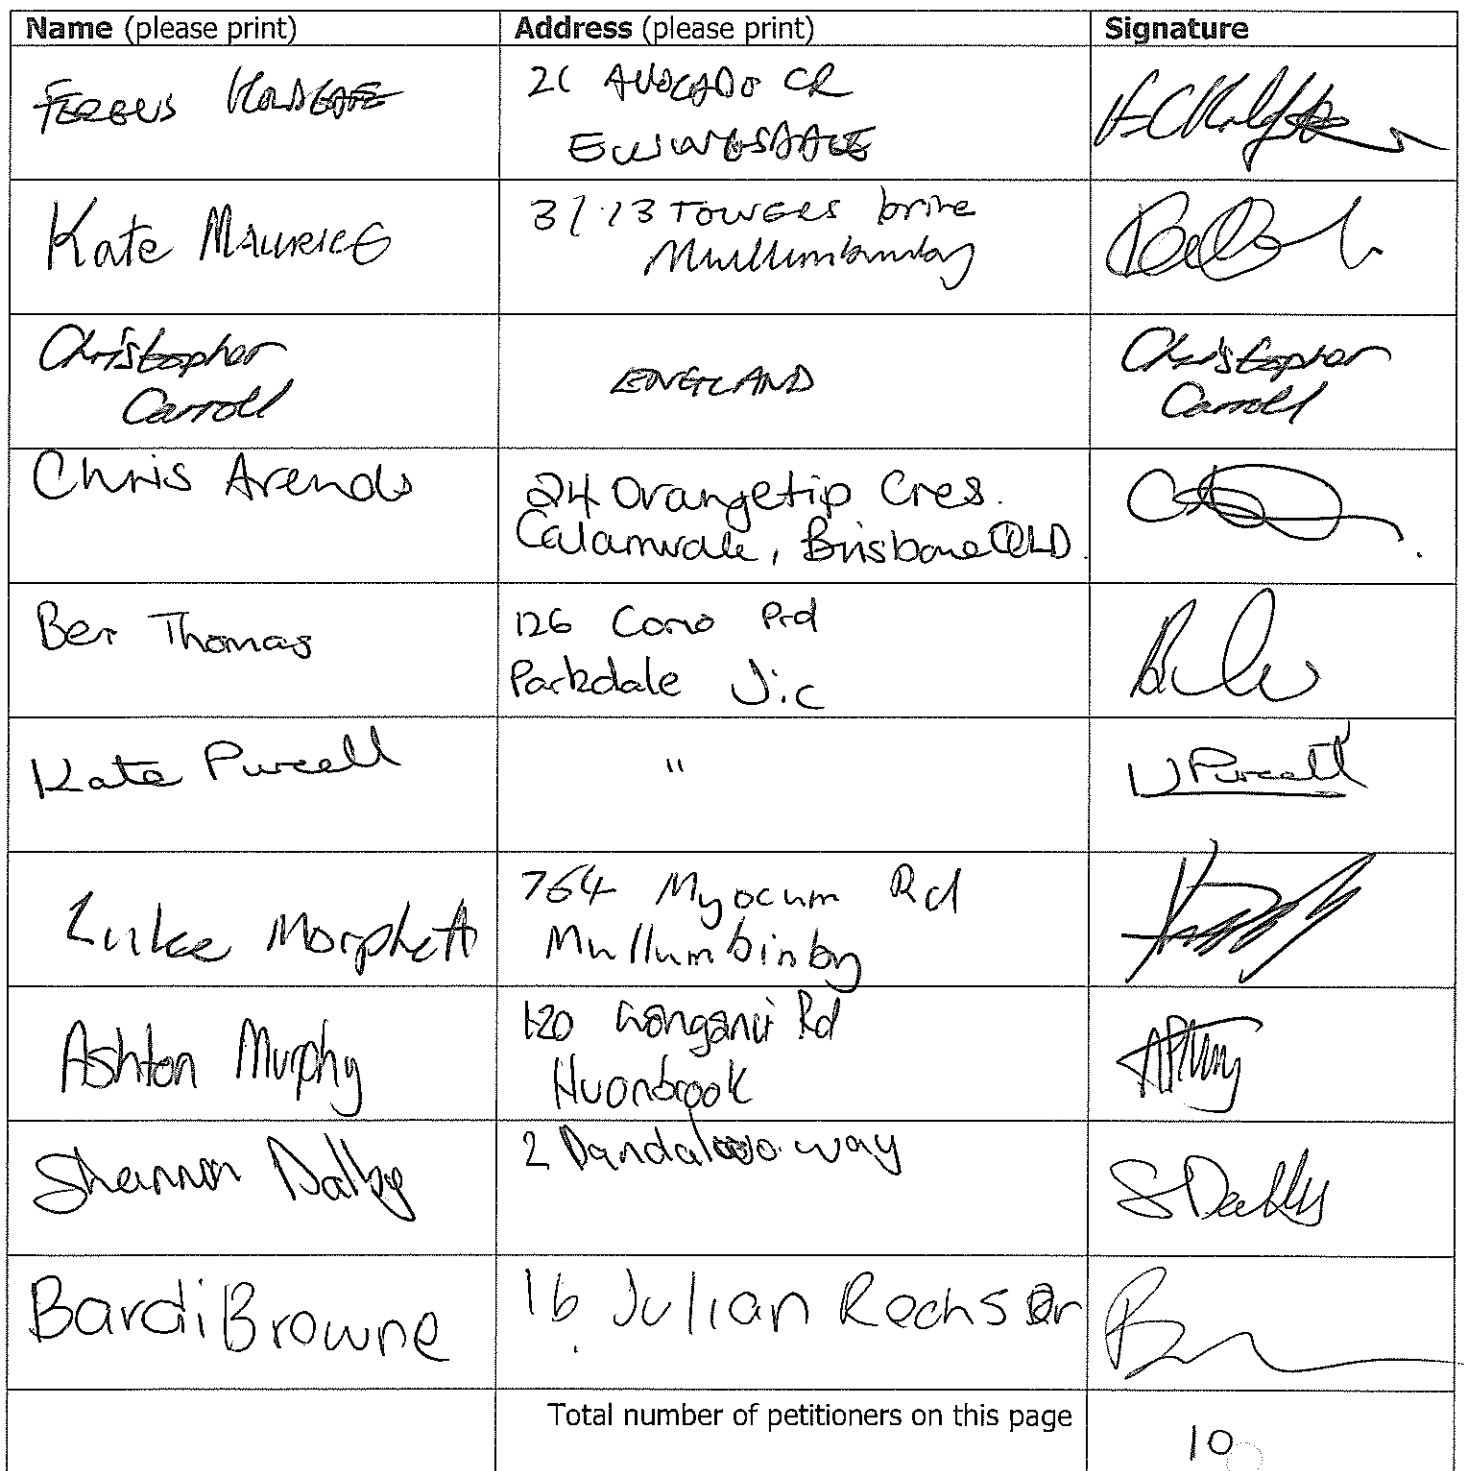 Name (please print) Address (please print) Signature
FERGUS 21 AVOCADO CR
EWINGSDALE
Kate MAURICE 3/13 TOWERS Drive
Mullumbimby
Christopher Carroll ENGLAND Christopher Carroll
Chris Arends 24 Orangetip Cres.
Calamvale, Brisbane QLD.
Ben Thomas 126 Como Prd
Parkdale Vic
Kate Purcell " K Purcell
Luke Morphett 764 Myocum Rd
Mullumbinby
Ashton Murphy 120 Rd
Huonbrook
Shannon Dalby 2 Dandaloo way S Dalby
Bardi Browne 16 Julian Rochs Dr
Total number of petitioners on this page 10